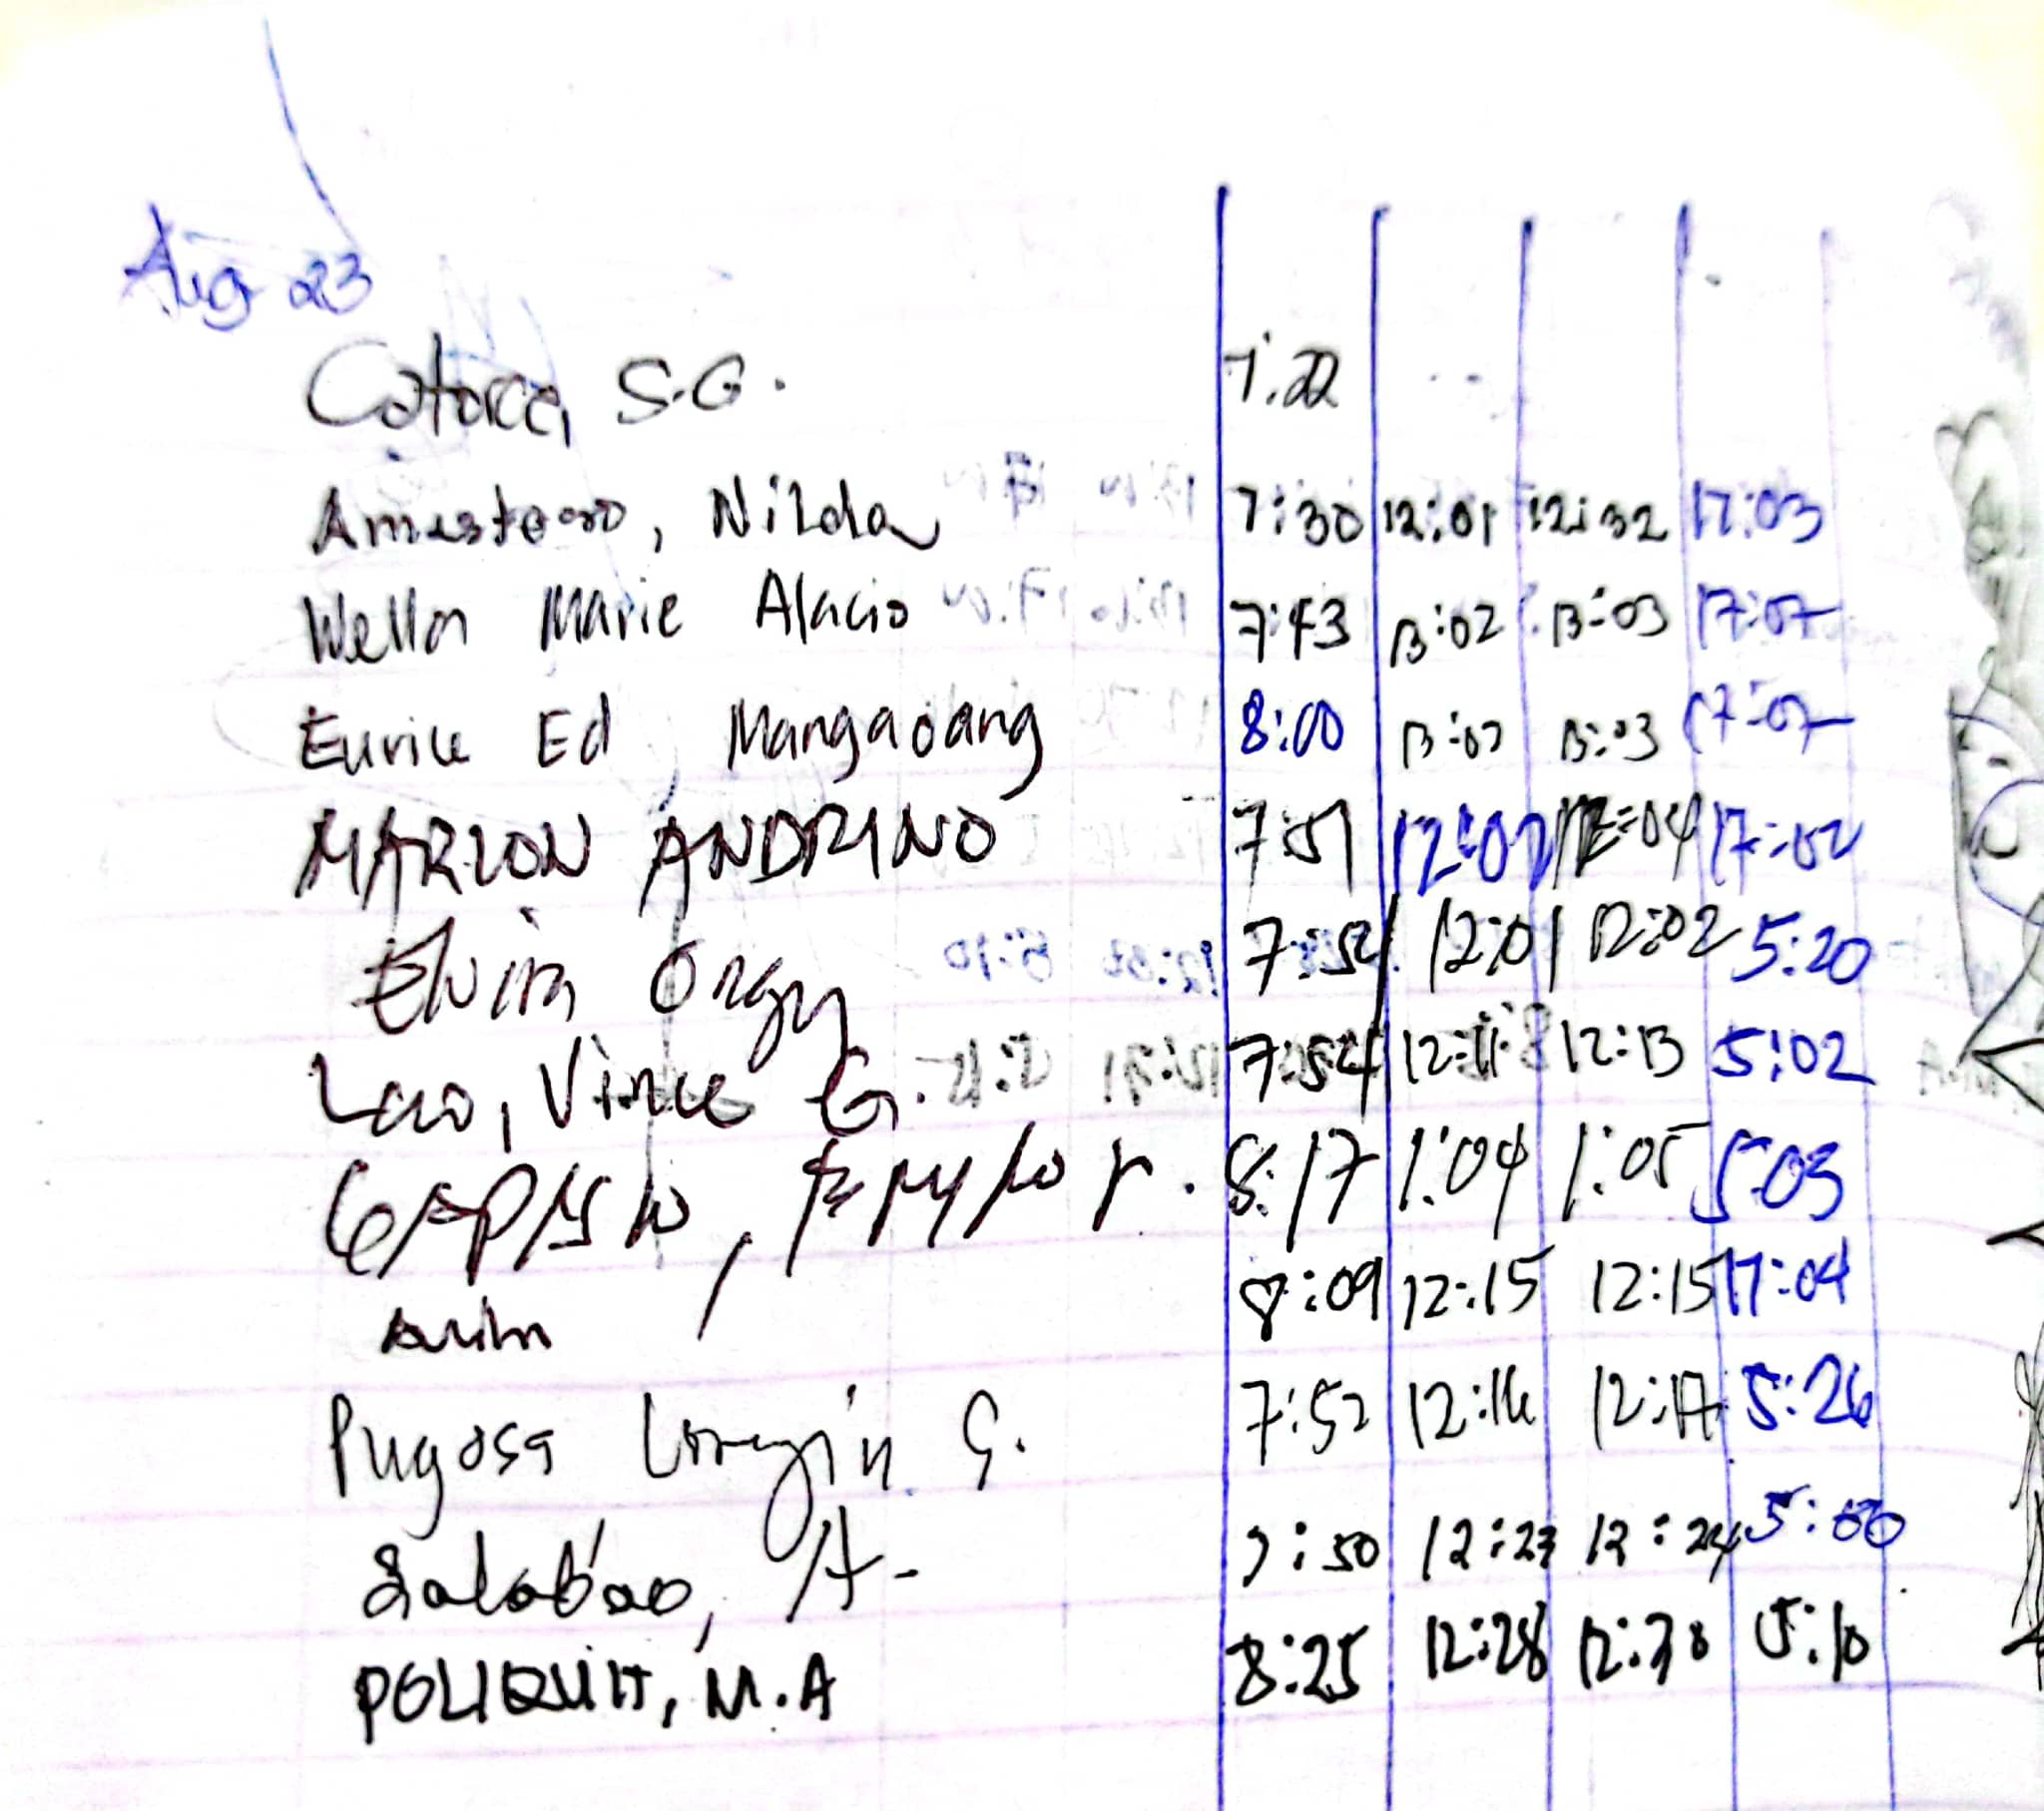 Aug 23
Catorce, S.G. 7:22
Nilda 7:30 12:01 12:32 17:03
Wella Marie Alacio 7:43 13:02 13:03 17:07
Eurice Ed Mangaoang 8:00 13:02 13:03 17:07
MARLON ANDRINO 7:51 12:02 12:04 17:02
Elvin 7:52 12:01 12:02 5:20
Lao, Vince G. 7:54 12:11 12:13 5:02
8:17 1:04 1:05 5:03
8:09 12:15 12:15 17:04
Pugosa G. 7:52 12:16 12:17 5:26
Salabao, A. 7:50 12:23 12:24 5:00
POLIQUIT, M.A 8:25 12:28 12:30 5:10